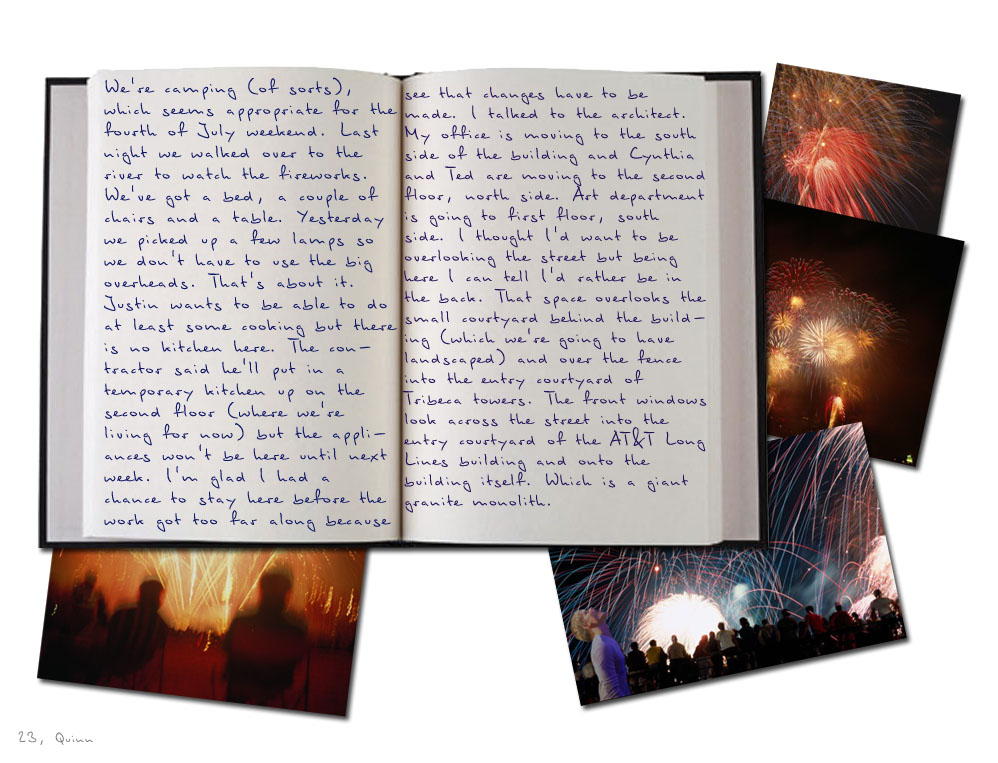 We're camping (of sorts),
which seems appropriate for the
fourth of July weekend. Last
night we walked over to the
river to watch the fireworks.
We've got a bed, a couple of
chairs and a table. Yesterday
we picked up a few lamps so
we don't have to use the big
overheads. That's about it.
Justin wants to be able to do
at least some cooking but there
is no kitchen here. The con-
tractor said he'll put in a
temporary kitchen up on the
second floor (where we're
living for now) but the appli-
ances won't be here until next
week. I'm glad I had a
chance to stay here before the
work got too far along because
see that changes have to be
made. I talked to the architect.
My office is moving to the south
side of the building and Cynthia
and Ted are moving to the second
floor, north side. Art department
is going to first floor, south
side. I thought I'd want to be
overlooking the street but being
here I can tell I'd rather be in
the back. That space overlooks the
small courtyard behind the build-
ing (which we're going to have
landscaped) and over the fence
into the entry courtyard of
Tribeca towers. The front windows
look across the street into the
entry courtyard of the AT&T Long
Lines building and onto the
building itself. Which is a giant
granite monolith.
23, Quinn